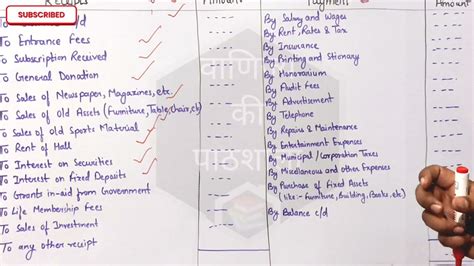 SUBSCRIBED
Receipts
Amount
Payment
Amount
To c/d
To Entrance Fees
To Subscription Received
To General Donation
To Sales of Newspaper, Magazines, etc.
To Sales of Old Assets (Furniture, Table, Chair, etc)
To Sales of Old Sports Material
To Rent of Hall
To Interest on Securities
To Interest on Fixed Deposits
To Grants in-aid from Government
To Life Membership Fees
To Sales of Investment
To any other receipt
By Salary and Wages
By Rent, Rates & Tax
By Insurance
By Printing and Stionary
By Honorarium
By Audit Fees
By Advertisement
By Telephone
By Repairs & Maintenance
By Entertainment Expenses
By Municipal / Corporation Taxes
By Miscllaneous and other Expenses
By Purchase of Fixed Assets
(like:- Furniture, Building, Books, etc.)
By Balance c/d
की